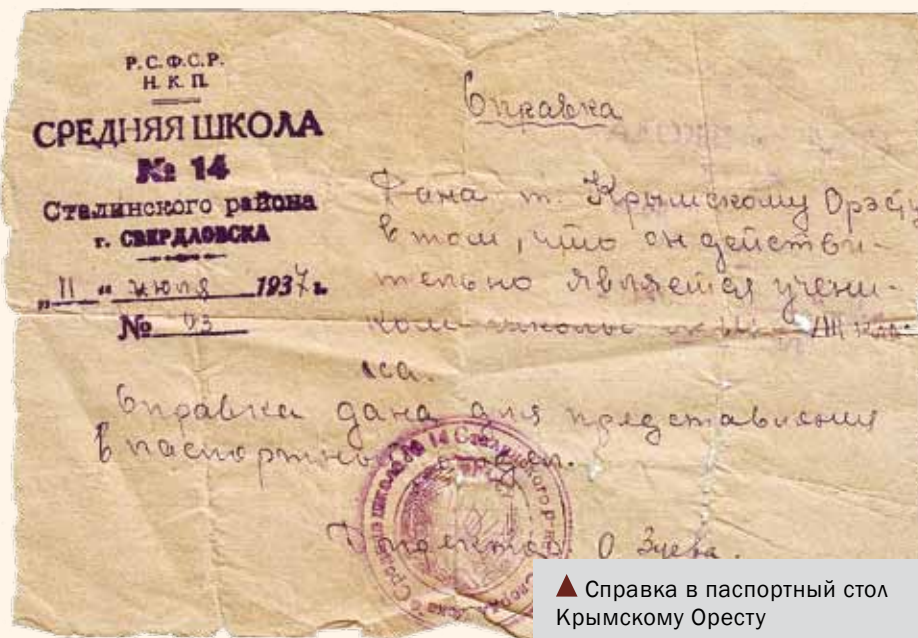 Р.С.Ф.С.Р.
Н.К.П.
СРЕДНЯЯ ШКОЛА
№ 14
Сталинского района
г. СВЕРДЛОВСКА
„11“ июля 1937 г.
№ 93
Справка
Дана т. Крымскому Орэсту
в том, что он действи-
тельно является учени-
ком школы
са.
Справка дана для представления
в паспортный отдел.
Директор О Зуева.
Средняя школа № 14 Сталинского р-на
▲ Справка в паспортный стол
Крымскому Оресту